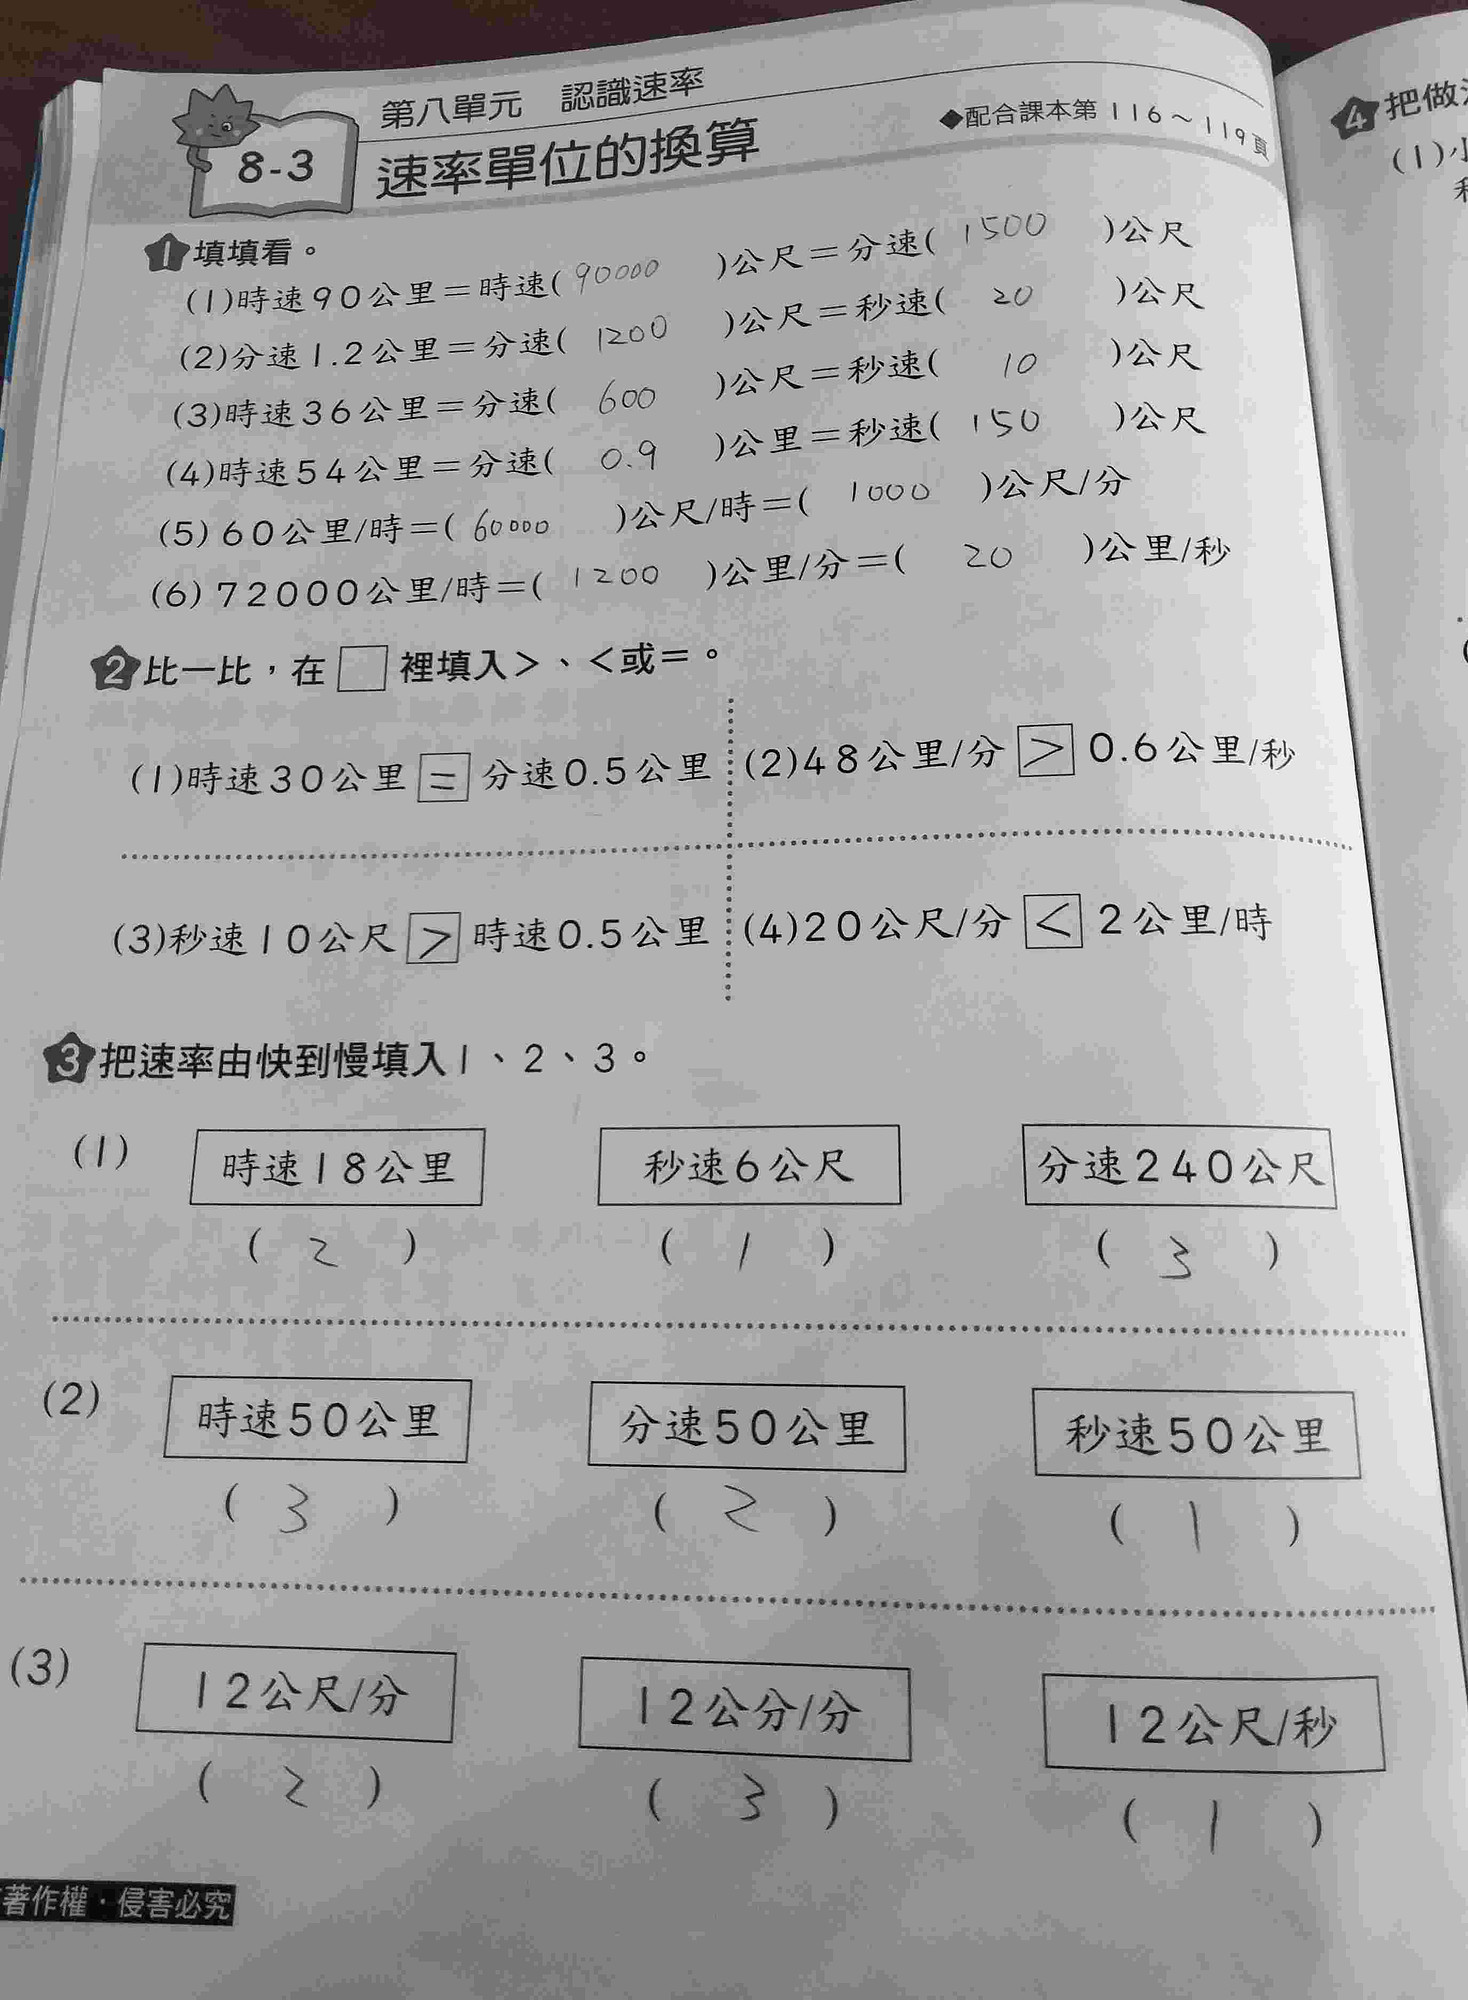 第八單元 認識速率
8-3 速率單位的換算
◆配合課本第116～119頁
1 填填看。
(1)時速90公里＝時速( 90000 )公尺＝分速( 1500 )公尺
(2)分速1.2公里＝分速( 1200 )公尺＝秒速( 20 )公尺
(3)時速36公里＝分速( 600 )公尺＝秒速( 10 )公尺
(4)時速54公里＝分速( 0.9 )公里＝秒速( 150 )公尺
(5)60公里/時＝( 60000 )公尺/時＝( 1000 )公尺/分
(6)72000公里/時＝( 1200 )公里/分＝( 20 )公里/秒
2 比一比，在□裡填入＞、＜或＝。
(1)時速30公里 = 分速0.5公里
(2)48公里/分 > 0.6公里/秒
(3)秒速10公尺 > 時速0.5公里
(4)20公尺/分 < 2公里/時
3 把速率由快到慢填入1、2、3。
(1) 時速18公里 秒速6公尺 分速240公尺
( 2 ) ( 1 ) ( 3 )
(2) 時速50公里 分速50公里 秒速50公里
( 3 ) ( 2 ) ( 1 )
(3) 12公尺/分 12公分/分 12公尺/秒
( 2 ) ( 3 ) ( 1 )
著作權・侵害必究
4 把做
(1)小